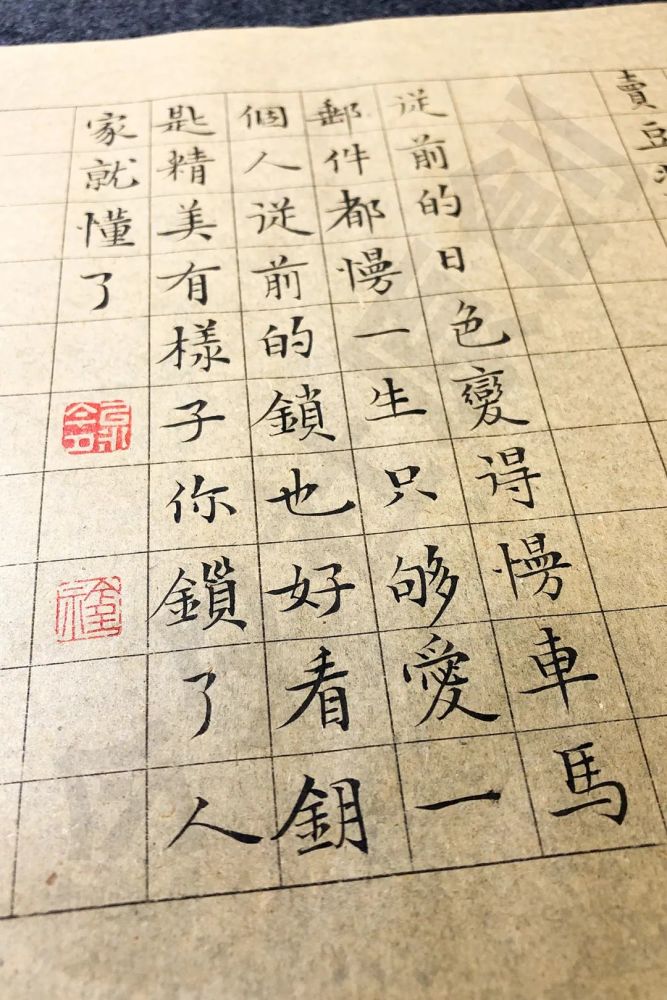 賣豆
従前的日色變得慢車馬
郵件都慢一生只够愛一
個人従前的鎖也好看鈅
匙精美有樣子你鎖了人
家就懂了